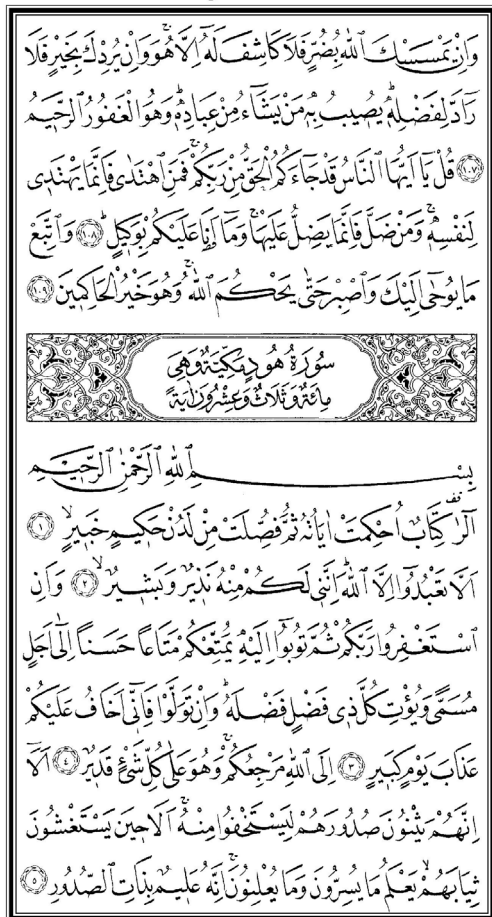 وَاِنْ يَمْسَسْكَ اللّٰهُ بِضُرٍّ فَلَا كَاشِفَ لَهُٓ اِلَّا هُوَۚ وَاِنْ يُرِدْكَ بِخَيْرٍ فَلَا
رَٓادَّ لِفَضْلِه۪ۜ يُص۪يبُ بِه۪ مَنْ يَشَٓاءُ مِنْ عِبَادِه۪ۜ وَهُوَ الْغَفُورُ الرَّح۪يمُ
﴿١٠٧﴾ قُلْ يَٓا اَيُّهَا النَّاسُ قَدْ جَٓاءَكُمُ الْحَقُّ مِنْ رَبِّكُمْۚ فَمَنِ اهْتَدٰى فَاِنَّمَا يَهْتَد۪ي
لِنَفْسِه۪ۚ وَمَنْ ضَلَّ فَاِنَّمَا يَضِلُّ عَلَيْهَاۚ وَمَٓا اَنَا۬ عَلَيْكُمْ بِوَك۪يلٍۜ ﴿١٠٨﴾ وَاتَّبِعْ
مَا يُوحٰٓى اِلَيْكَ وَاصْبِرْ حَتّٰى يَحْكُمَ اللّٰهُۚ وَهُوَ خَيْرُ الْحَاكِم۪ينَ ﴿١٠٩﴾
سُورَةُ هُودٍ مَكِّيَّةٌ وَهِيَ
مِائَةٌ وَثَلَاثٌ وَعِشْرُونَ اٰيَةً
بِسْمِ اللّٰهِ الرَّحْمٰنِ الرَّح۪يمِ
الٓرٰ۠ كِتَابٌ اُحْكِمَتْ اٰيَاتُهُ ثُمَّ فُصِّلَتْ مِنْ لَدُنْ حَك۪يمٍ خَب۪يرٍۙ ﴿١﴾
اَلَّا تَعْبُدُٓوا اِلَّا اللّٰهَۜ اِنَّن۪ي لَكُمْ مِنْهُ نَذ۪يرٌ وَبَش۪يرٌۙ ﴿٢﴾ وَاَنِ
اسْتَغْفِرُوا رَبَّكُمْ ثُمَّ تُوبُٓوا اِلَيْهِ يُمَتِّعْكُمْ مَتَاعًا حَسَنًا اِلٰٓى اَجَلٍ
مُسَمًّى وَيُؤْتِ كُلَّ ذ۪ي فَضْلٍ فَضْلَهُۜ وَاِنْ تَوَلَّوْا فَاِنّ۪ٓي اَخَافُ عَلَيْكُمْ
عَذَابَ يَوْمٍ كَب۪يرٍ ﴿٣﴾ اِلَى اللّٰهِ مَرْجِعُكُمْۚ وَهُوَ عَلٰى كُلِّ شَيْءٍ قَد۪يرٌ ﴿٤﴾ اَلَٓا
اِنَّهُمْ يَثْنُونَ صُدُورَهُمْ لِيَسْتَخْفُوا مِنْهُۜ اَلَا ح۪ينَ يَسْتَغْشُونَ
ثِيَابَهُمْۙ يَعْلَمُ مَا يُسِرُّونَ وَمَا يُعْلِنُونَۚ اِنَّهُ عَل۪يمٌ بِذَاتِ الصُّدُورِ ﴿٥﴾